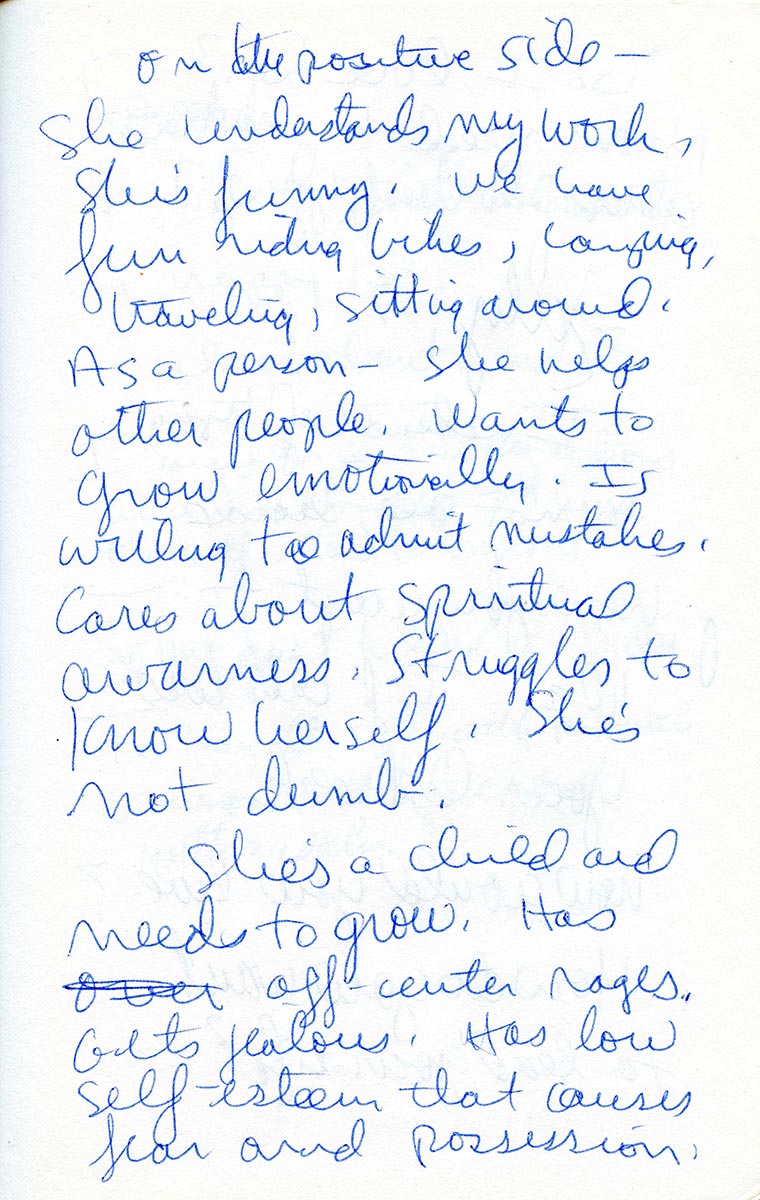 on the positive side —
She understands my work,
She's funny. We have
fun riding bikes, camping,
traveling, sitting around.
As a person — she helps
other people. Wants to
grow emotionally. Is
willing to admit mistakes.
Cares about spiritual
awarness. Struggles to
know herself. She's
not dumb.
She's a child and
needs to grow. Has
over off-center rages.
Gets jealous. Has low
self-esteem that causes
fear and possession.